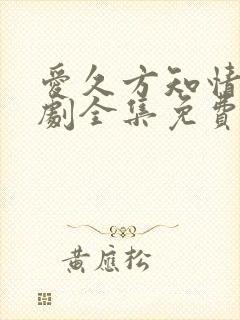 愛久方知情
劇全集免費
黃應松